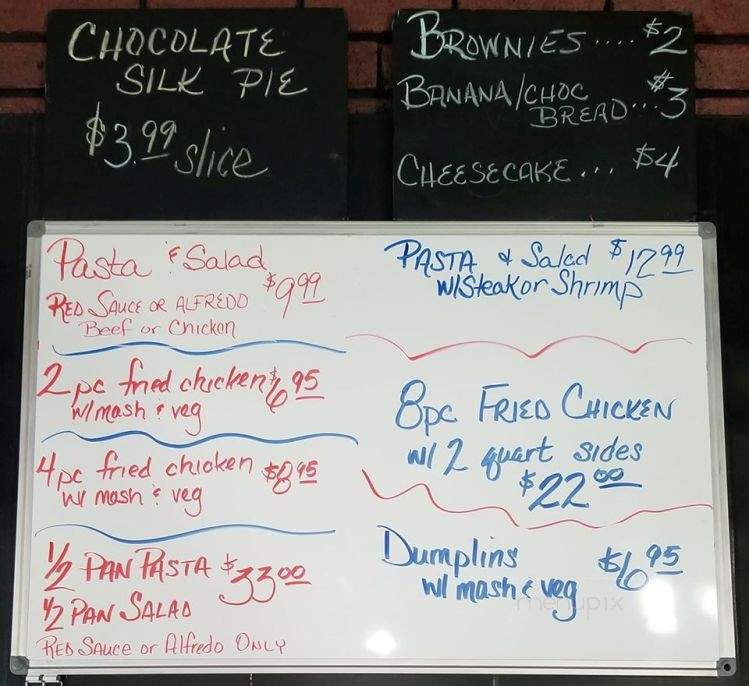 CHOCOLATE
SILK PIE
$3.99 slice
BROWNIES .... $2
BANANA/CHOC
BREAD... $3
CHEESECAKE ... $4
Pasta & Salad
$9.99
RED SAUCE OR ALFREDO
Beef or Chicken
2 pc fried chicken $6.95
w/ mash & veg
4 pc fried chicken $8.95
w/ mash & veg
1/2 PAN PASTA $33.00
1/2 PAN SALAD
RED SAUCE or Alfredo ONLY
PASTA & Salad $12.99
w/Steak or Shrimp
8pc FRIED CHICKEN
w/ 2 quart sides
$22.00
Dumplins $6.95
w/ mash & veg
menupix